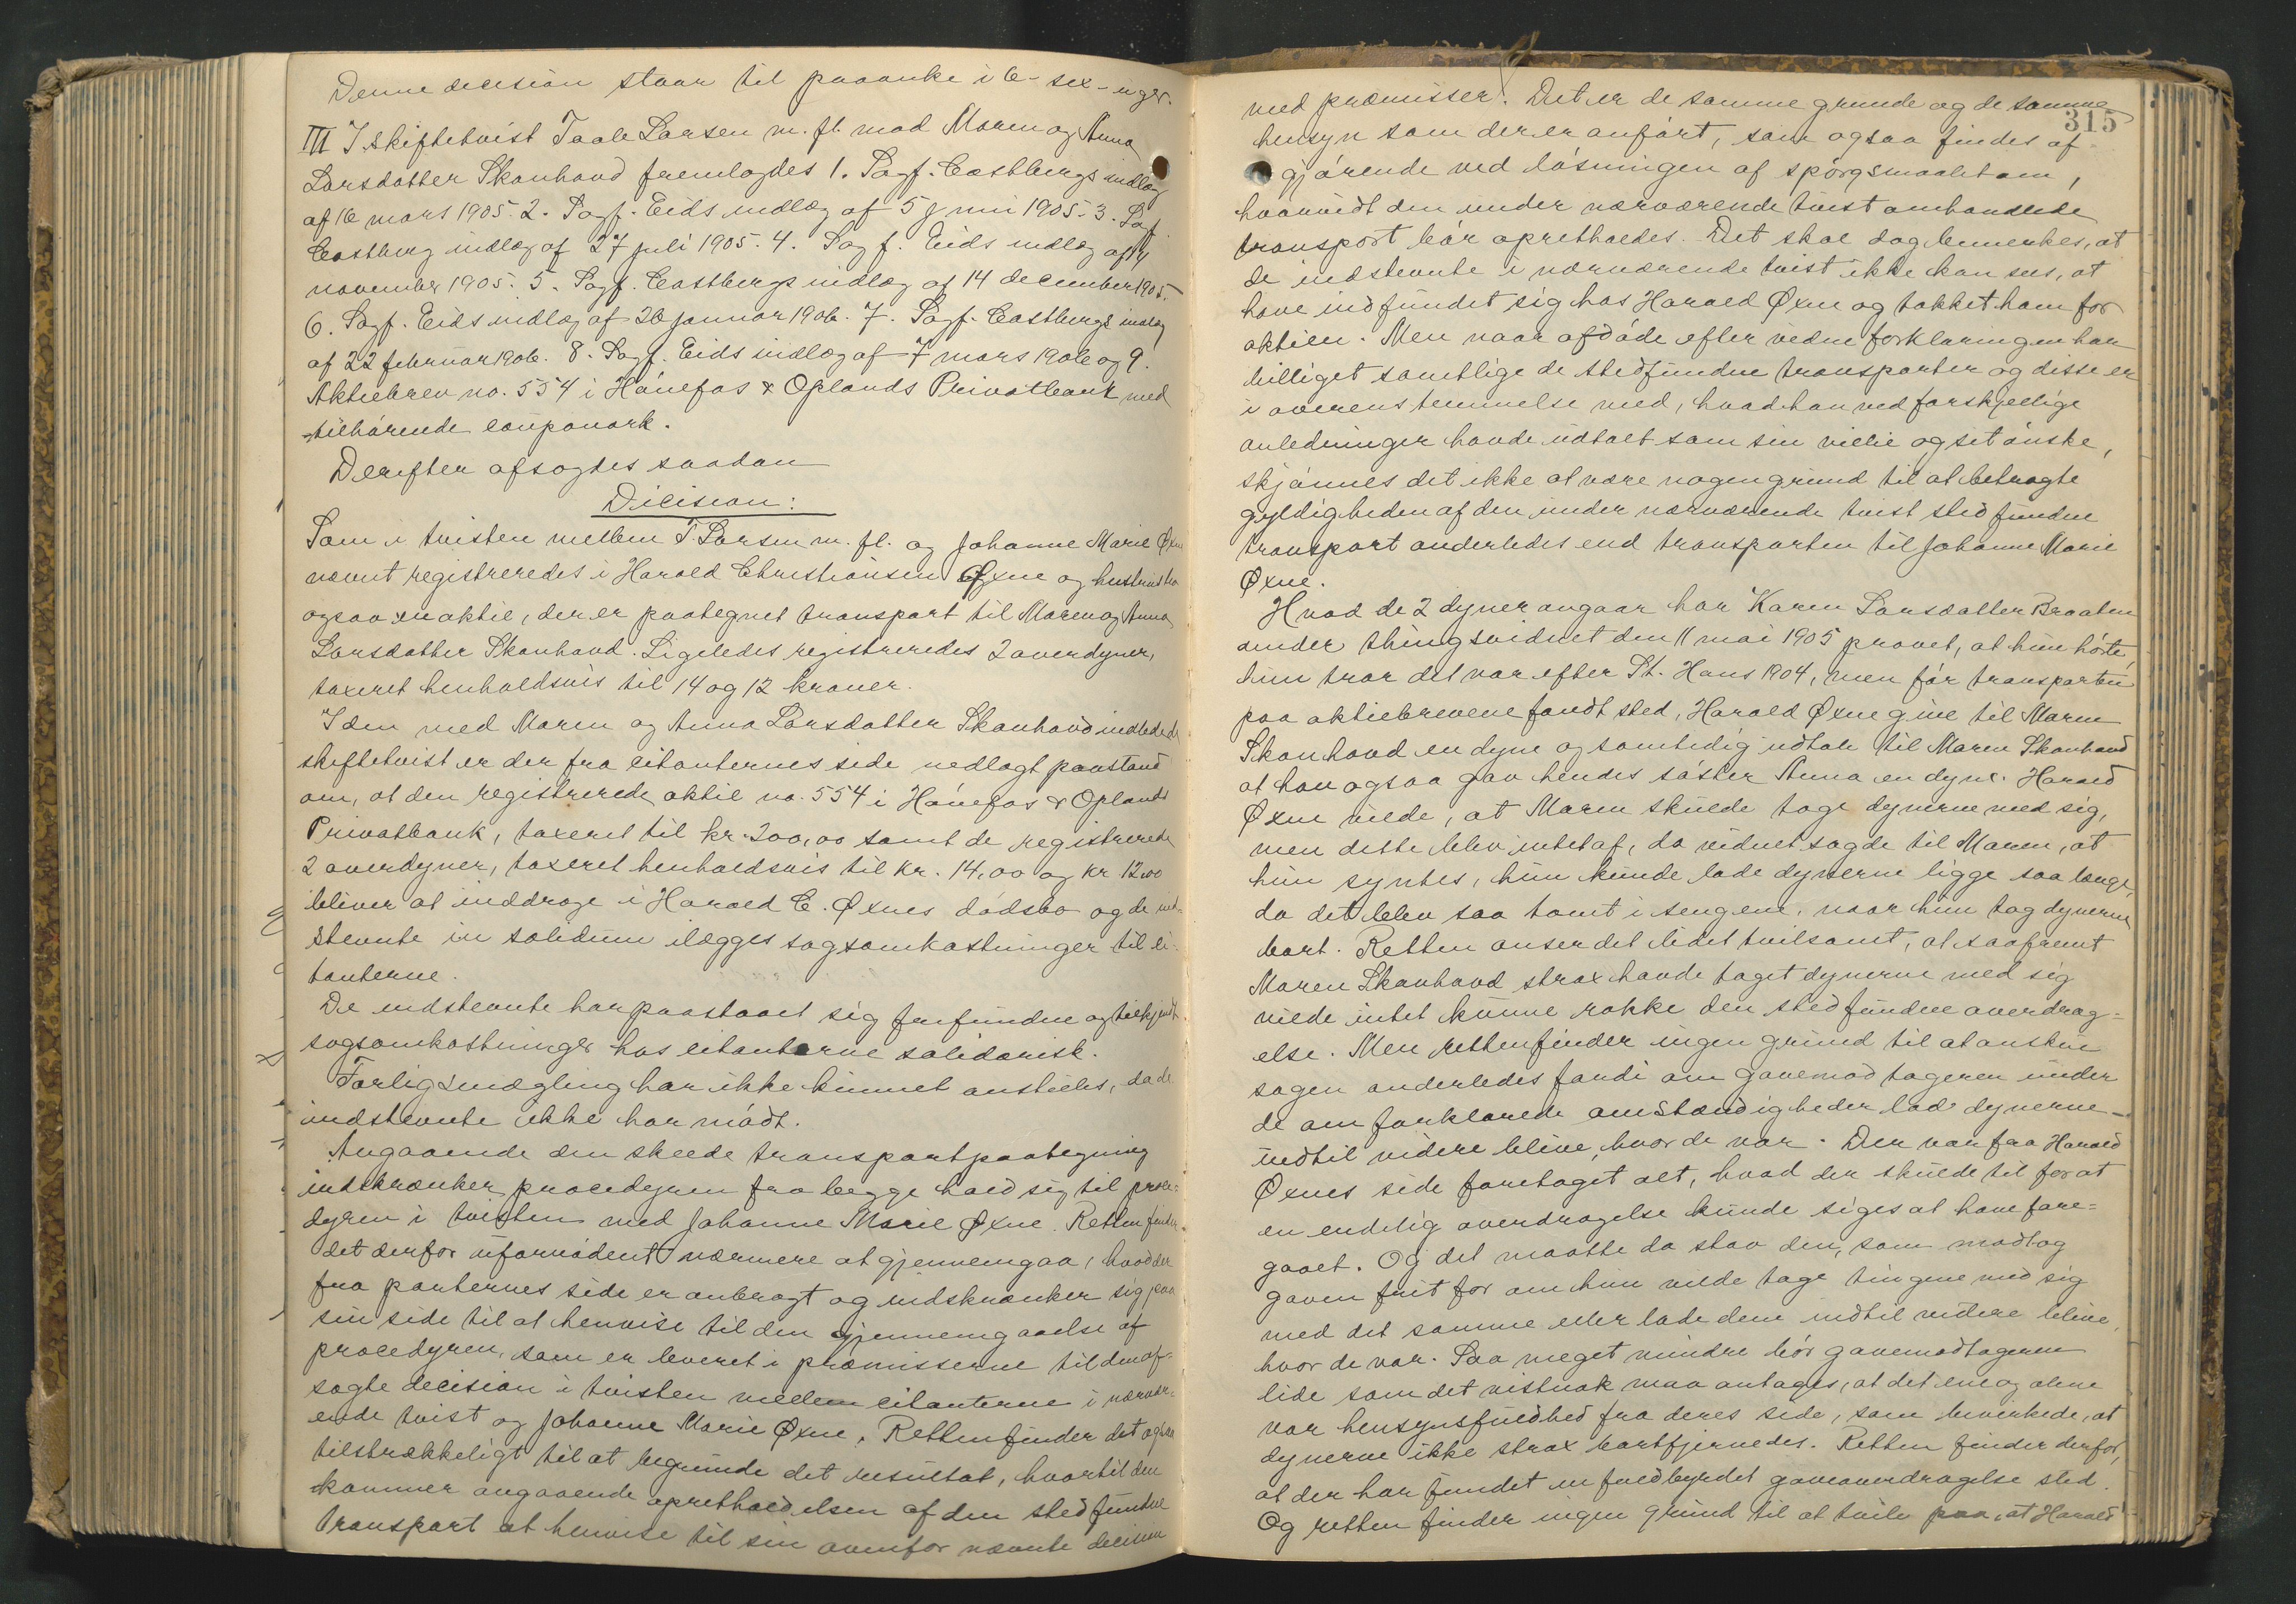 Denne decision staar til paaanke i 6 - sex - uger.
III I skiftetvist Taale Larsen m. fl. mod Maren og Anna
Larsdatter Skauhaud fremlagdes 1. Sagf. Castbergs indlæg
af 16 mars 1905. 2. Sagf. Eids indlæg af 5 juni 1905. 3. Sagf.
Castberg indlæg af 27 juli 1905. 4. Sagf. Eids indlæg af
november 1905. 5. Sagf. Castbergs indlæg af 14 december 1905.
6. Sagf. Eids indlæg af 26 januar 1906. 7. Sagf. Castbergs indlæg
af 22 februar 1906. 8. Sagf. Eids indlæg af 7 mars 1906 og 9.
Aktiebrev no. 554 i Hønefos & Oplands Privatbank med
tilhørende couponark.
Derefter afsagdes saadan
Dicision:
Som i tvisten mellem T. Larsen m. fl. og Johanne Marie Øxne
nævnt registreredes i Harald Christiansen Øxne og hustrus bo
ogsaa en aktie, der er paategnet transport til Maren og Anna
Larsdatter Skauhaud. Ligeledes registreredes 2 overdyner,
taxeret henholdsvis til 14 og 12 kroner.
I den med Maren og Anna Larsdatter Skauhaud indledede
skiftetvist er der fra citanternes side nedlagt paastand
om, at den registrerede aktie no. 554 i Hønefos & Oplands
Privatbank, taxeret til kr. 200,00 samt de registrerede
2 overdyner, taxeret henholdsvis til kr. 14,00 og kr 12.00
bliver at inddrage i Harald C. Øxnes dødsbo og de ind-
stevnte in solidum ilægges sagsomkostninger til ci-
tanterne.
De indstevnte har paastaaet sig frifundne og tilkjendt
sagsomkostninger hos citanterne solidarisk.
Forligsmægling har ikke kunnet anstilles, da de
indstevnte ikke har mødt.
Angaaende den skeede transportpaategning
indskrænker proceduren fra begge hold sig til proce-
dyren i tvisten med Johanne Marie Øxne. Retten finder
det derfor ufornødent nærmere at gjennemgaa, hvad der
fra parternes side er anbragt og indskrænker sig paa
sin side til at henvise til den gjennemgaaelse af
procedyren, som er leveret i præmisserne til den af-
sagte decision i tvisten mellem citanterne i nærvær-
ende tvist og Johanne Marie Øxne. Retten finder det ogsaa
tilstrækkeligt til at begrunde det resultat, hvortil den
kommer angaaende opretholdelsen af den stedfundne
transport at henvise til sin ovenfor nævnte decision
315
med præmisser. Det er de samme grunde og de samme
hensyn som der er anført, som ogsaa findes af-
gjørende ved løsningen af spørgsmaalet om,
hvorvidt den under nærværende tvist omhandlede
transport bør opretholdes. Det skal dog bemerkes, at
de indstevnte i nærværende tvist ikke kan sees, at
have indfundet sig hos Harald Øxne og takket ham for
aktien. Men naar afdøde efter vidneforklaringen har
billiget samtlige de stedfundne transporter og disse er
i overensstemmelse med, hvad han ved forskjellige
anledninger havde udtalt som sin vilie og sit ønske,
skjønnes det ikke at være nogen grund til at betragte
gyldigheden af den under nærværende tvist stedfundne
transport anderledes end transporten til Johanne Marie
Øxne.
Hvad de 2 dyner angaar har Karen Larsdatter Braaten
under thingsvidnet den 11 mai 1905 provet, at hun hørte,
hun tror det var efter St. Hans 1904, men før transporten
paa aktiebrevene fandt sted, Harald Øxne give til Maren
Skauhaud en dyne og samtidig udtale til Maren Skauhaud
at han ogsaa gav hendes søster Anna en dyne. Harald
Øxne vilde, at Maren skulde tage dynerne med sig,
men dette blev intet af, da vidnet sagde til Maren, at
hun syntes, hun kunde lade dynerne ligge saa længe,
da det blev saa tomt i sengene, naar hun tog dynerne
bort. Retten anser det lidet tvilsomt, at saafremt
Maren Skauhaud strax havde taget dynerne med sig
vilde intet kunne rokke den stedfundne overdrag-
else. Men retten finder ingen grund til at ansee
sagen anderledes fordi om gavemodtageren under
de om forklarede omstændigheder lod dynerne
indtil videre blive, hvor de var. Der var fra Harald
Øxnes side foretaget alt, hvad der skulde til for at
en endelig overdragelse kunde siges at have fore-
gaaet. Og det maatte da staa den, som modtog
gaven frit for om hun vilde tage tingene med sig
med det samme eller lade dem indtil videre blive,
hvor de var. Saa meget mindre bør gavemodtageren
lide som det vistnok maa antages, at det ene og alene
var hensynsfuldhed fra deres side, som bevirkede, at
dynerne ikke strax bortfjernedes. Retten finder derfor,
at der har fundet en fuldbyrdet gaveoverdragelse sted.
Og retten finder ingen grund til at tvile paa, at Harald